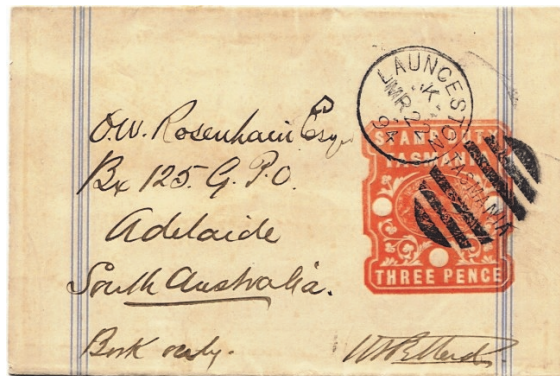 LAUNCESTON TASMANIA
K
MR 22
94
STAMP DUTY
TASMANIA
THREE PENCE
O.W. Rosenhain Esq
Bx 125. G.P.O.
Adelaide
South Australia.
Book only.